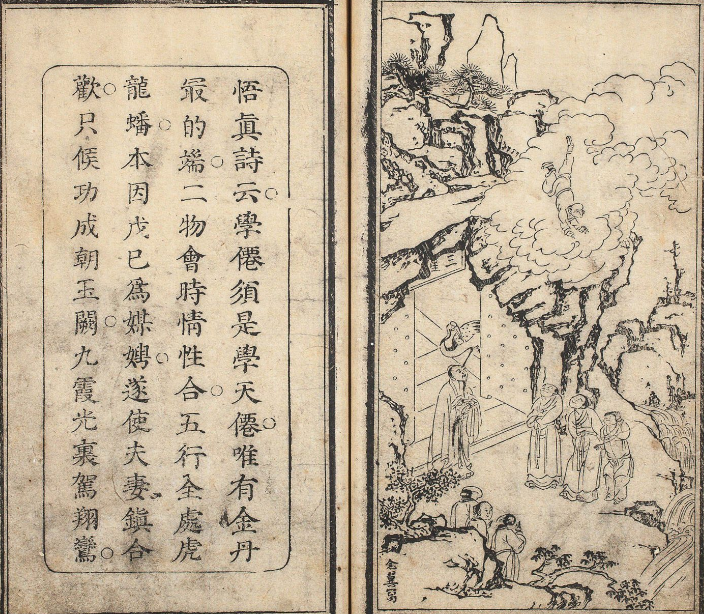 悟眞詩云學僊須是學天僊唯有金丹
最的端二物會時情性合五行全處虎
龍蟠本因戊巳爲媒娉遂使夫妻鎭合
歡只候功成朝玉闕九霞光裏駕翔鸞